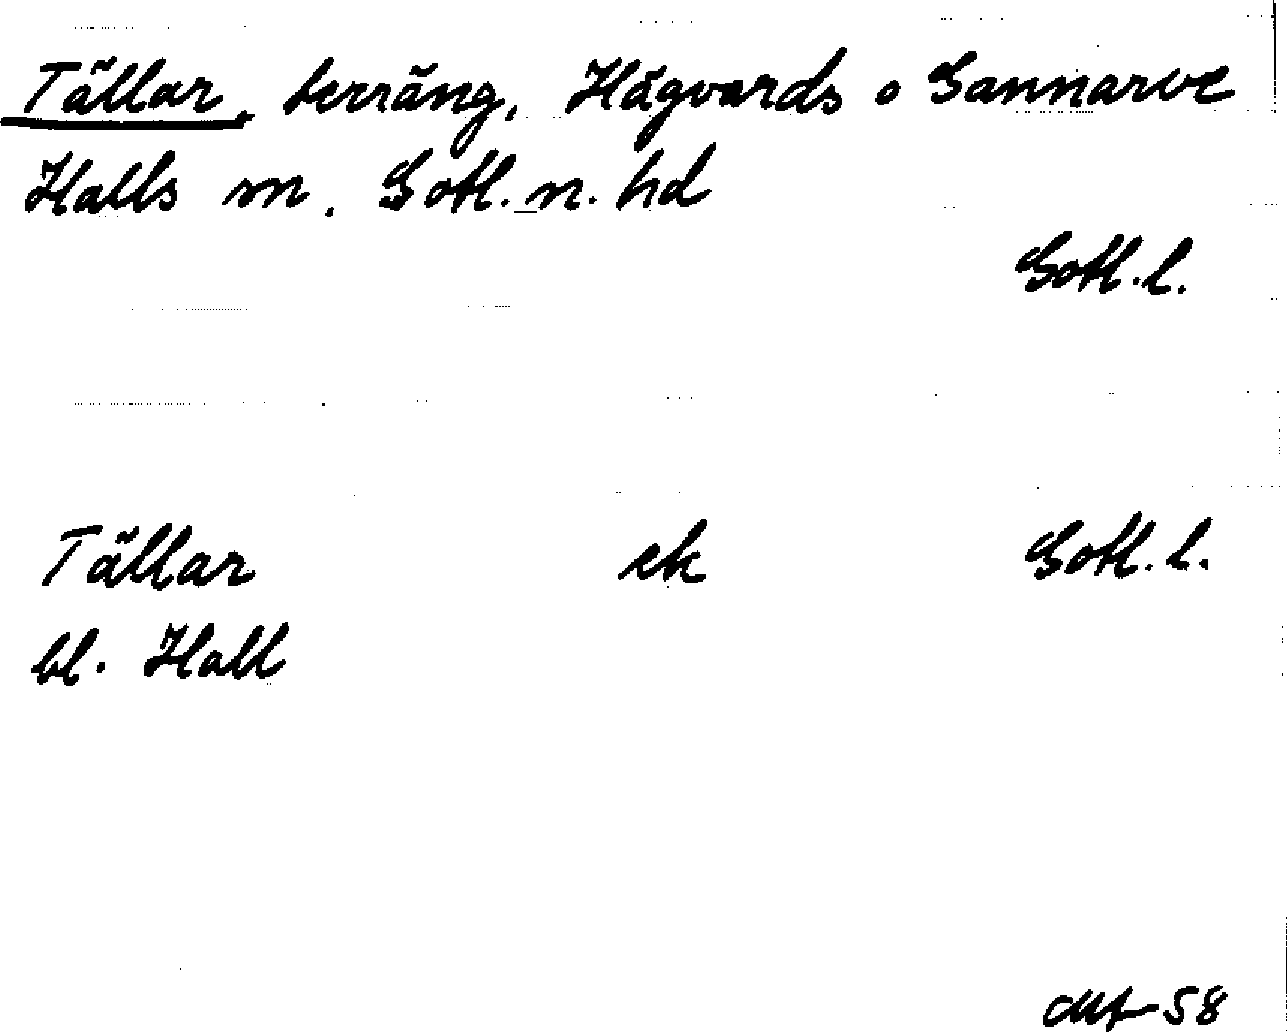 Tällar, terräng, Hägvards o Gannarve
Halls sn. Gotl. n. hd
Gotl. l.
Tällar ek Gotl. l.
bl. Hall
58